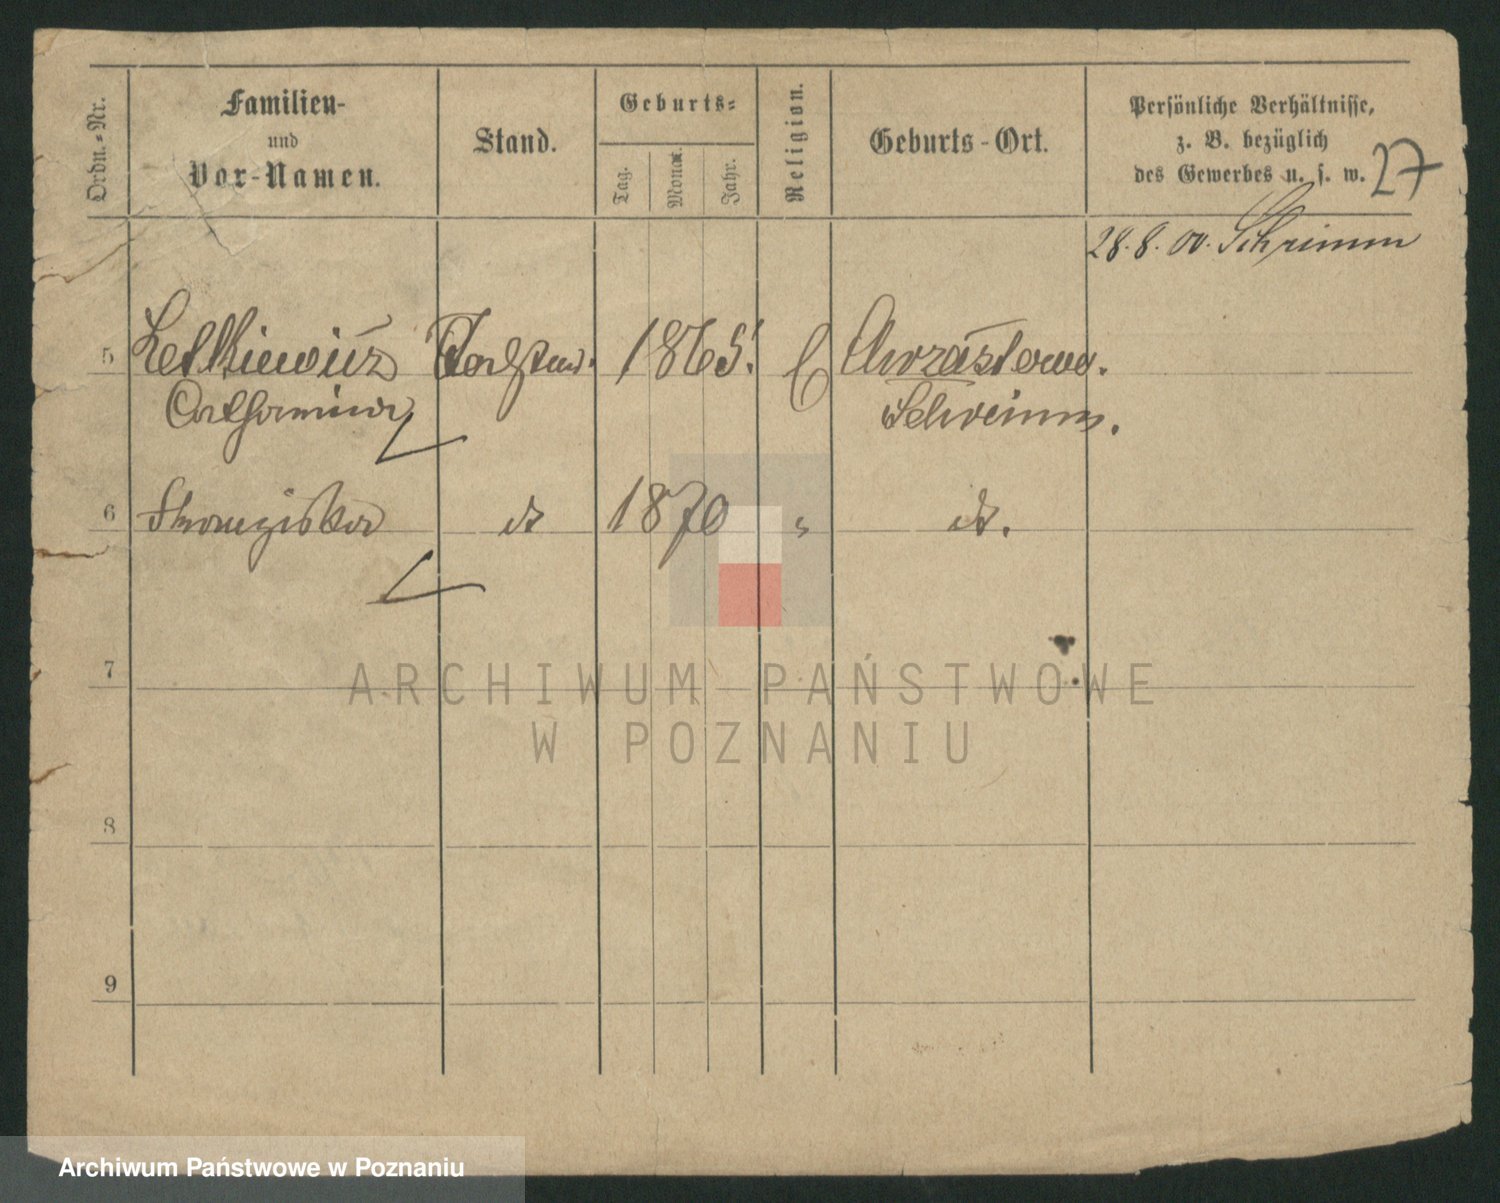 Ordn.-Nr.
Familien-
und
Vor-Namen.
Stand.
Geburts-
Tag.
Monat.
Jahr.
Religion.
Geburts-Ort.
Persönliche Verhältnisse,
z. B. bezüglich
des Gewerbes u. s. w.
27
28.8.00. Schrimm
5 Letkiewicz 1865.
Catharina
6 Franziska dt 1870 " dt.
7
8
9
ARCHIWUM PAŃSTWOWE
W POZNANIU
Archiwum Państwowe w Poznaniu